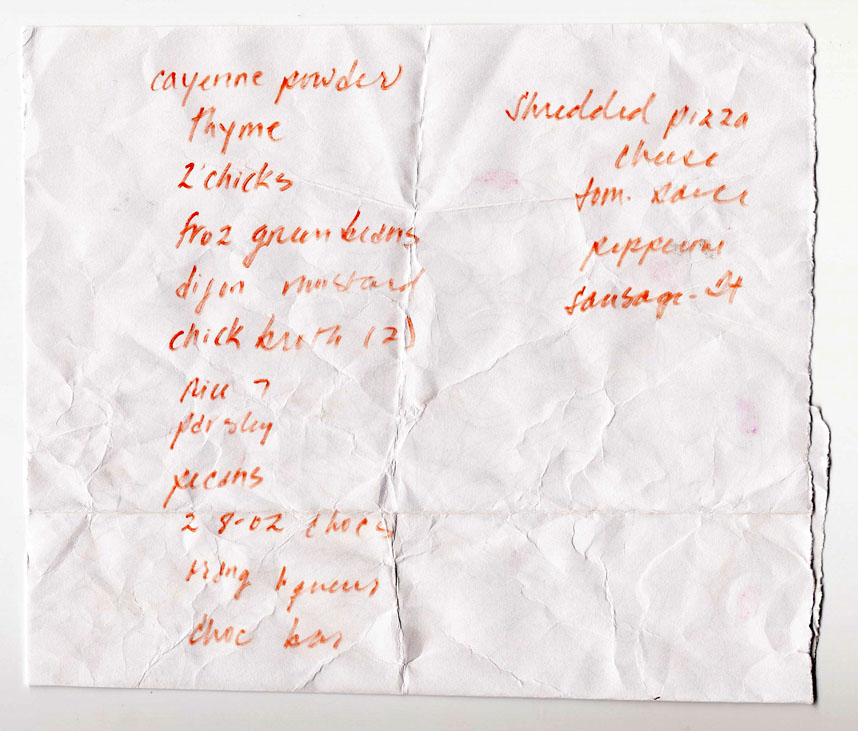 cayenne powder
thyme
2 chicks
froz green beans
dijon mustard
chick broth (2)
rice ?
parsley
pecans
2 8-oz chocs
orang liqueur
choc bar
shredded pizza
cheese
tom. sauce
pepperoni
sausage-It